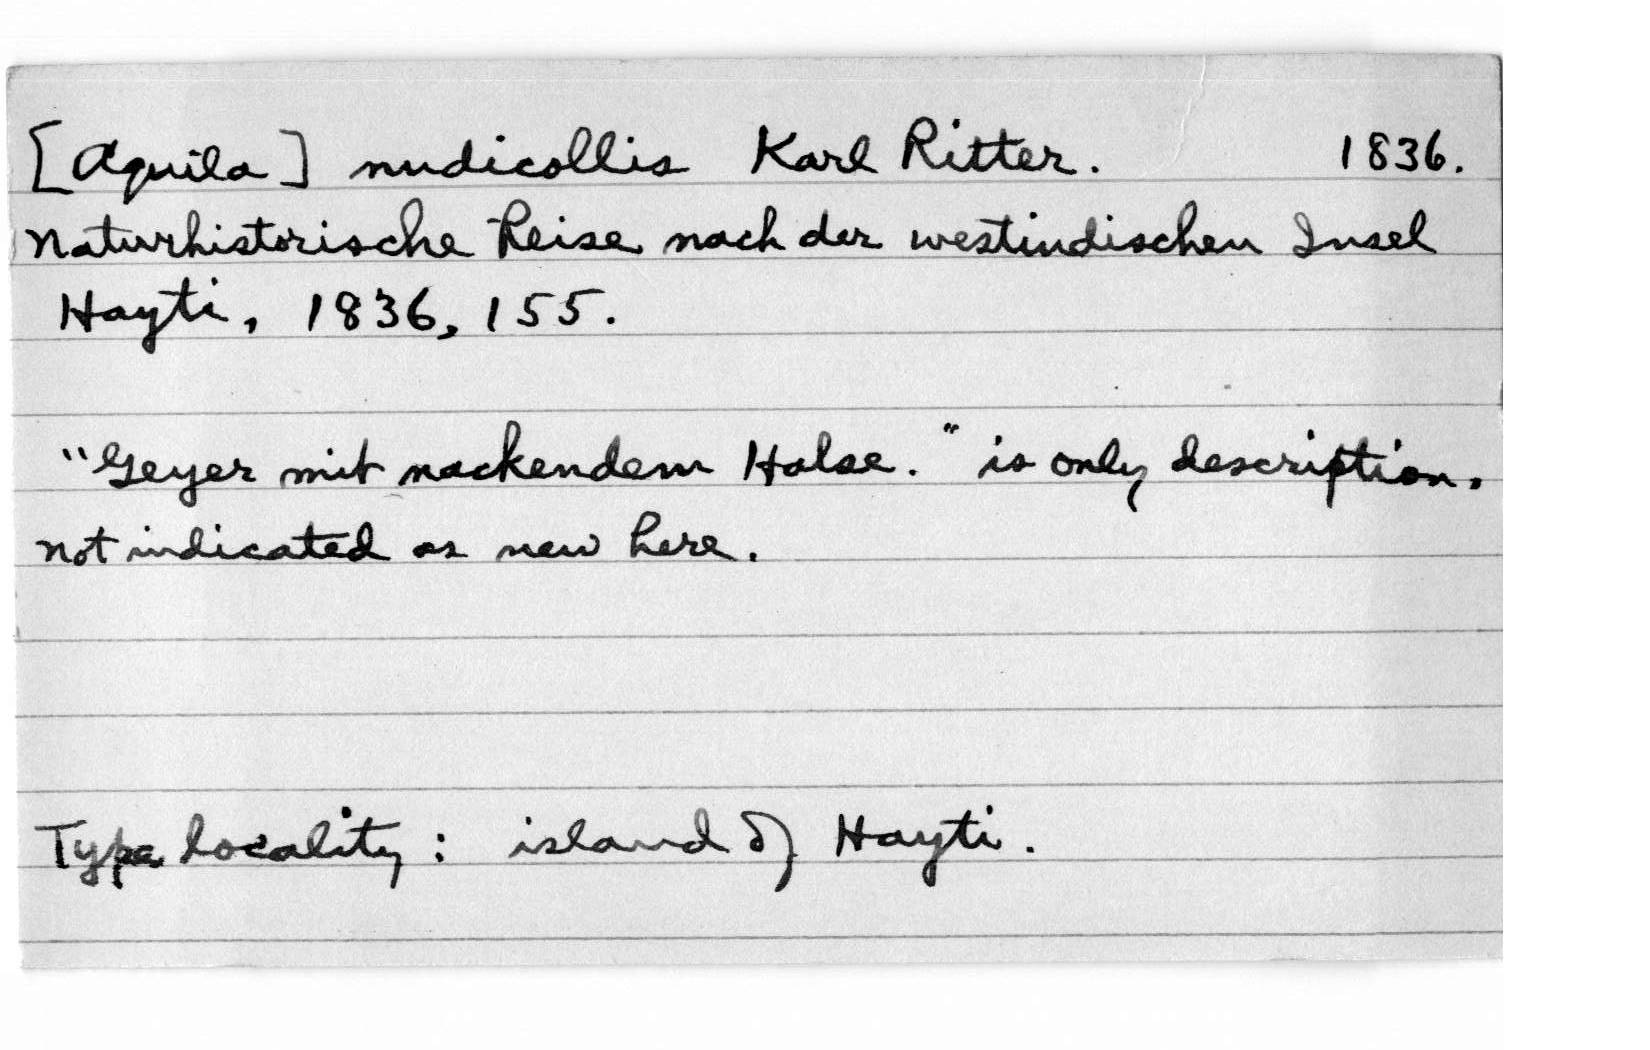 [Aquila] nudicollis Karl Ritter. 1836.
Naturhistorische Reise nach der westindischen Insel
Hayti, 1836, 155.
"Geyer mit nackendem Halse." is only description.
not indicated as new here.
Type locality: island of Hayti.